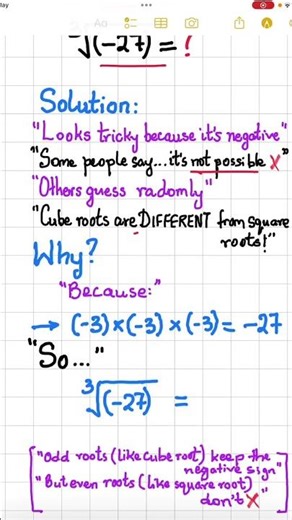 lay
∛(-27) = ?
Solution:
"Looks tricky because it's negative"
"Some people say...it's not possible X"
"Others guess radomly"
"Cube roots are DIFFERENT from square
roots!"
Why?
"Because:"
→ (-3)×(-3)×(-3) = -27
"So..."
∛(-27) =
"Odd roots (like cube root) keep the
negative sign"
"But even roots (like square root)
don't X"